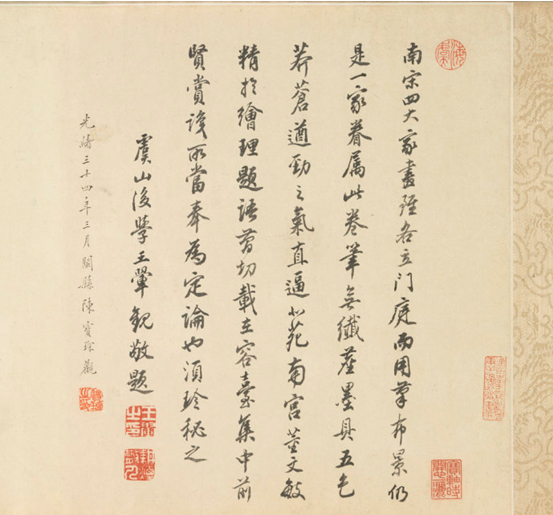 南宋四大家畫雖各立門庭而用筆布景仍
是一家眷屬此卷筆無纖塵墨具五色
莽蒼遒勁之氣直逼北苑南宮董文敏
精於繪理題語切載在容臺集中前
賢賞所當奉為定論也須珍秘之
虞山後學王翬觀敬題
王翬之印
光緒三十四年三月閩縣陳寶琛觀